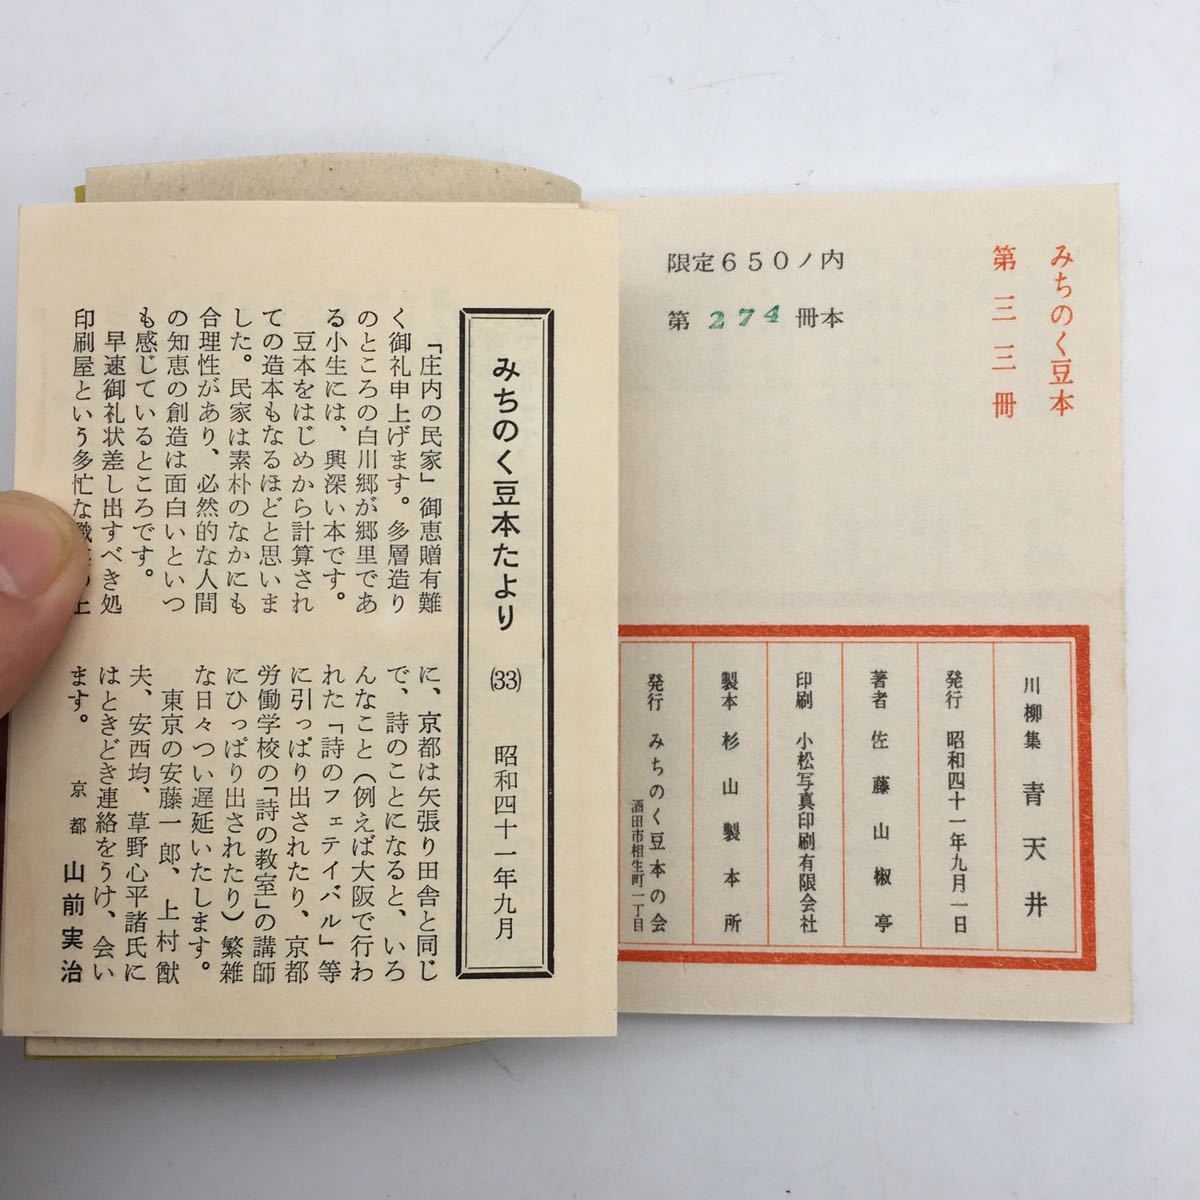 みちのく豆本
第三三冊
限定650ノ内
第274冊本
川柳集 青天井
発行 昭和四十一年九月一日
著者 佐藤山椒亭
印刷 小松写真印刷有限会社
製本 杉山製本所
発行 みちのく豆本の会
酒田市相生町一丁目
みちのく豆本たより (33) 昭和四十一年九月
「庄内の民家」御恵贈有難
く御礼申上げます。多層造り
のところの白川郷が郷里であ
る小生には、興深い本です。
豆本をはじめから計算され
ての造本もなるほどと思いま
した。民家は素朴のなかにも
合理性があり、必然的な人間
の知恵の創造は面白いといつ
も感じているところです。
早速御礼状差し出すべき処
印刷屋という多忙な
に、京都は矢張り田舎と同じ
で、詩のことになると、いろ
んなこと(例えば大阪で行わ
れた「詩のフェテイバル」等
に引っぱり出されたり、京都
労働学校の「詩の教室」の講師
にひっぱり出されたり)繁雑
な日々つい遅延いたします。
東京の安藤一郎、上村猷
夫、安西均、草野心平諸氏に
はときどき連絡をうけ、会い
ます。 京都 山前実治